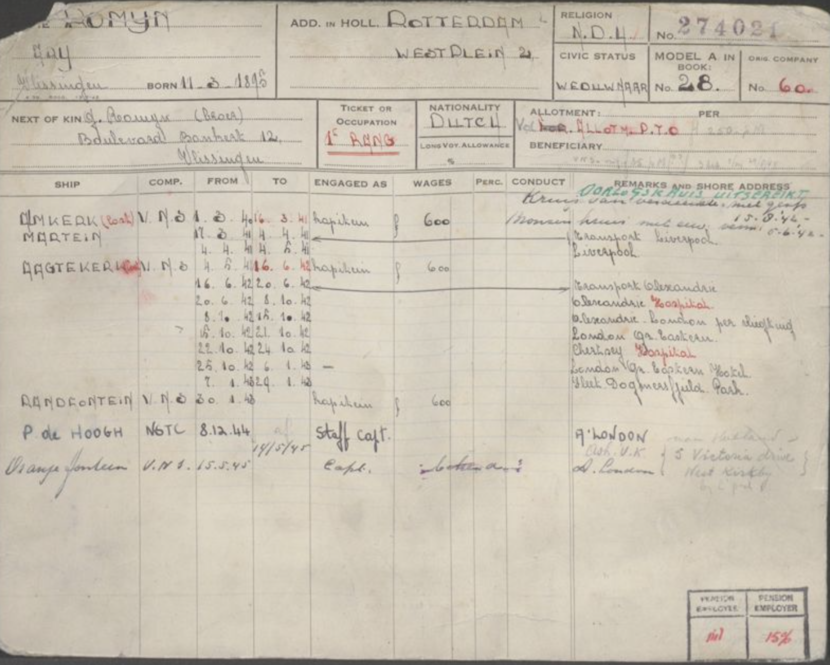 ROMYN
ADD. IN HOLL. ROTTERDAM
WESTPLEIN 2
RELIGION
N.D.H.
No. 274021
CIVIC STATUS
WEDUWNAAR
MODEL A IN BOOK:
No. 28.
ORIG. COMPANY
No. 60.
Vlissingen BORN 11-3-1895
NEXT OF KIN J. Romyn (Broer)
Boulevard Bankert 12,
Vlissingen
TICKET OR OCCUPATION
1e RANG
NATIONALITY
DUTCH
LONG VOY. ALLOWANCE
ALLOTMENT: PER
ALLOTM. D.T.O
BENEFICIARY
SHIP COMP. FROM TO ENGAGED AS WAGES PERC. CONDUCT REMARKS AND SHORE ADDRESS
OORLOGSKRUIS UITGEREIKT
Kruis van Verdienste met gesp
15.8.42-
5-6-42-
AMKERK (lost) V.N.S 1.3.41 16.3.41 kapitein } 600
MARTEIN 17.3.41 4.4.41 Transport Liverpool
4.4.41 4.5.41 Liverpool
AAGTEKERK V.N.S 4.5.41 16.6.42 kapitein } 600
16.6.42 20.6.42 Transport Alexandrie
20.6.42 8.10.42 Alexandrie Hospital
8.10.42 15.10.42 Alexandrie London per vliegtuig
15.10.42 21.10.42 London Gr. Eastern
22.10.42 24.10.42 Chertsey Hospital
25.10.42 6.1.43 — London Gr. Eastern Hotel
7.1.43 29.1.43 Fleet Dogmersfield Park.
RANDFONTEIN V.N.S 30.1.43 kapitein } 600
P. de HOOGH NGTC 8.12.44 14/5/45 Staff Capt. A'LONDON
Oranjefontein V.N.S. 15.5.45 Capt. A. London
5 Victoria drive
West Kirkby
PENSION EMPLOYEE
nil
PENSION EMPLOYER
15%